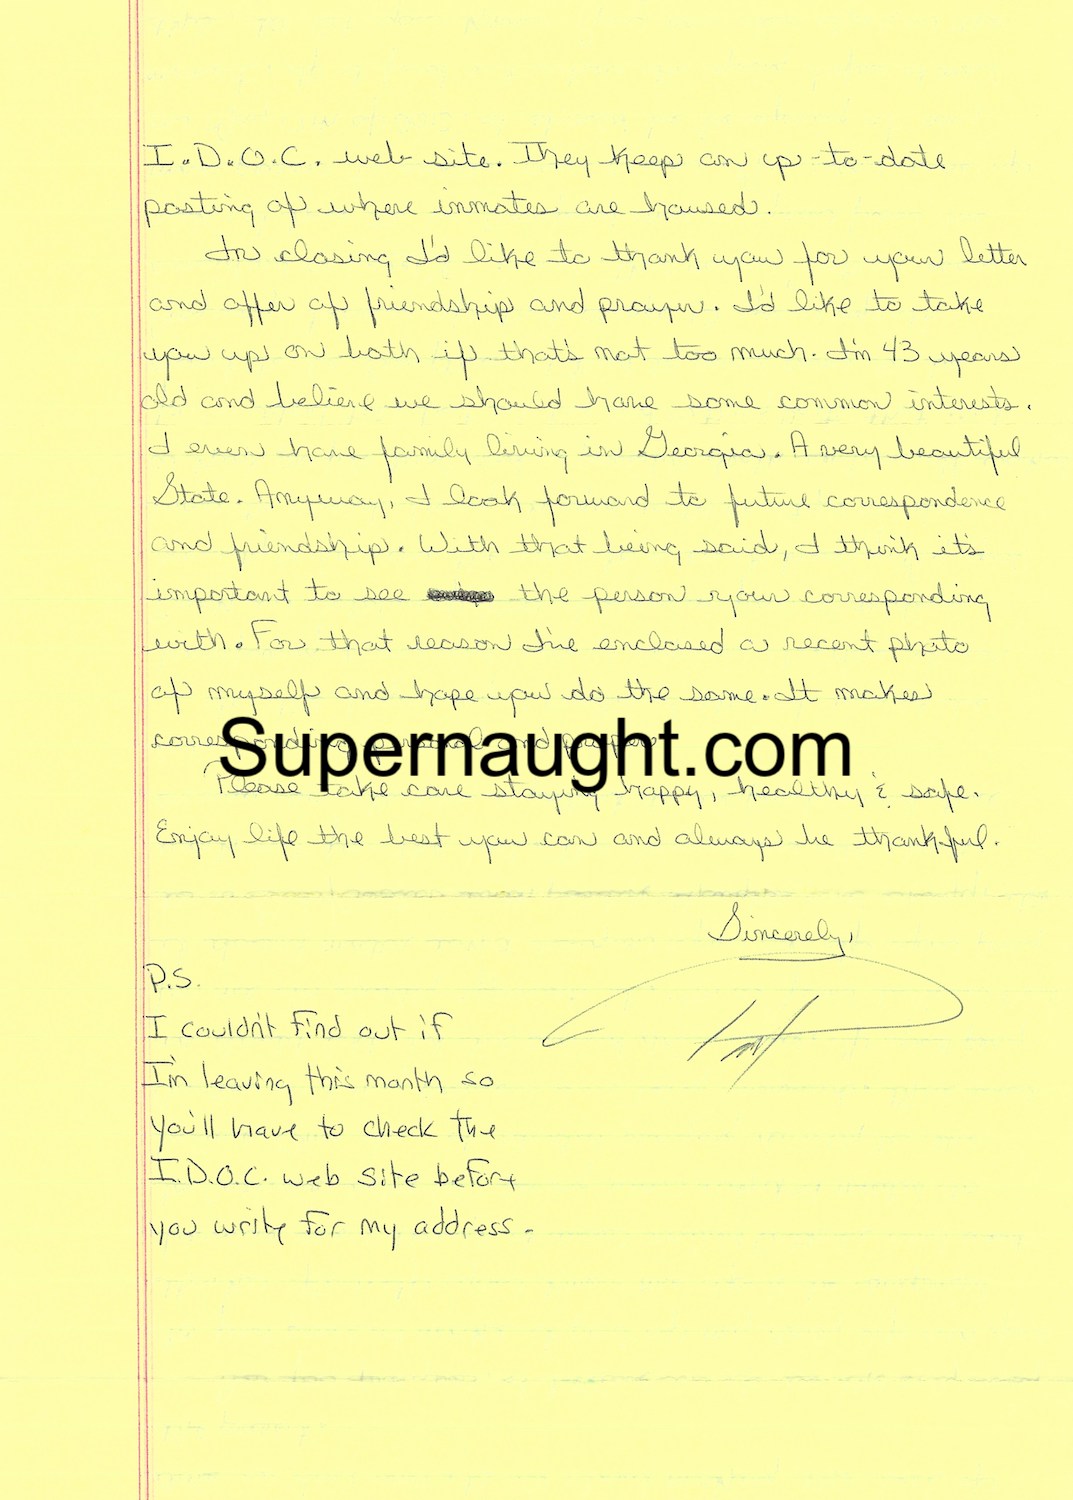 I.D.O.C. web site. They keep an up-to-date
posting of where inmates are housed.
In closing I'd like to thank you for your letter
and offer of friendship and prayer. I'd like to take
you up on both if that's not too much. I'm 43 years
old and believe we should have some common interests.
I even have family living in Georgia. A very beautiful
State. Anyway, I look forward to future correspondence
and friendship. With that being said, I think it's
important to see the person your corresponding
with. For that reason I've enclosed a recent photo
of myself and hope you do the same. It makes
corresponding personal and proper.
Supernaught.com
Please take care staying happy, healthy & safe.
Enjoy life the best you can and always be thankful.
Sincerely,
P.S.
I couldn't find out if
I'm leaving this month so
you'll have to check the
I.D.O.C. web site before
you write for my address.